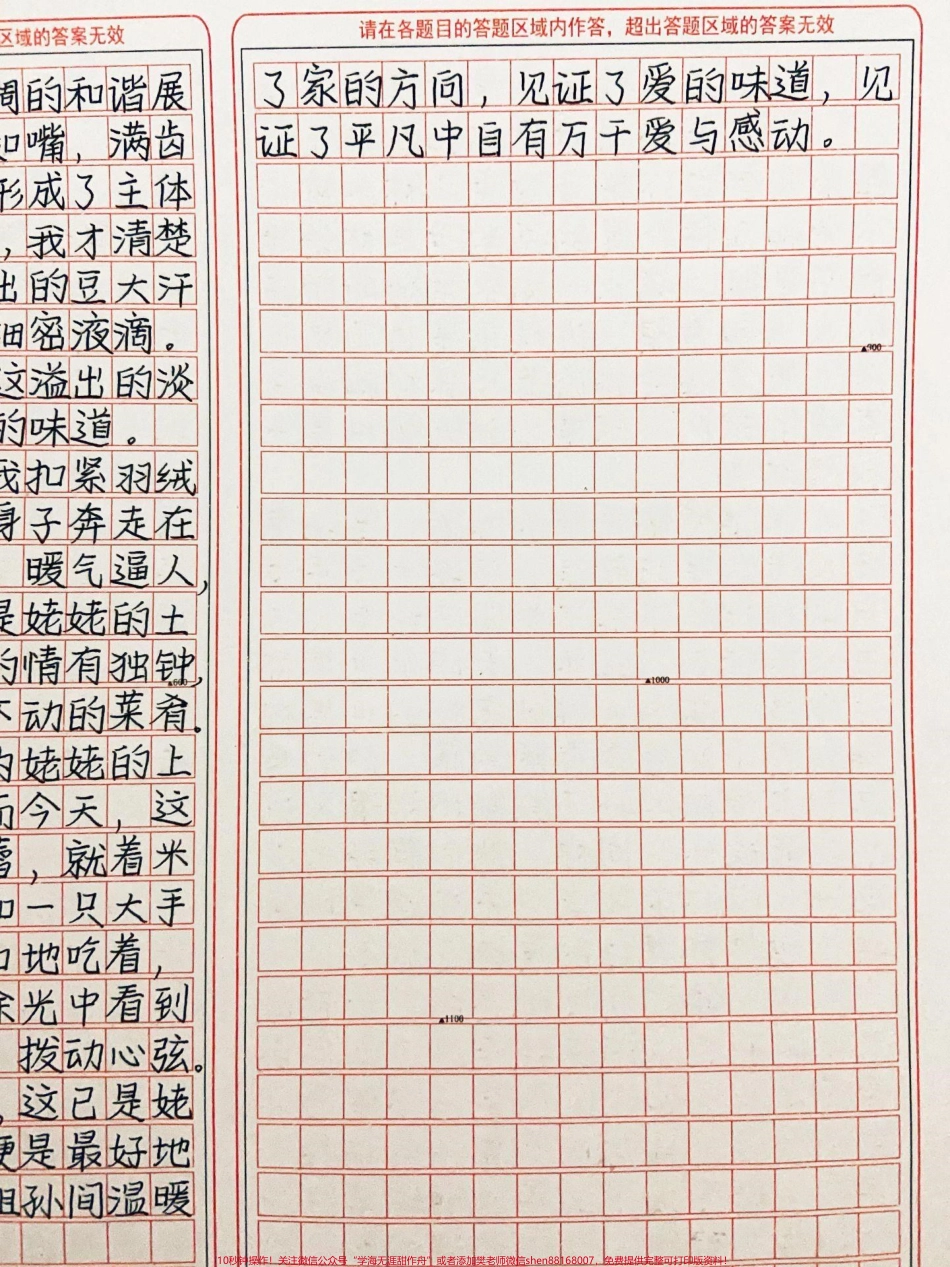 区域的答案无效
的和谐展
嘴，满齿
形成了主体
，我才清楚
出的豆大汗
细密液滴。
这溢出的淡
的味道。
我扣紧羽绒
身子奔走在
暖气逼人，
是姥姥的土
的情有独钟，
▲600
不动的菜肴。
的姥姥的上
而今天，这
，就着米
如一只大手
口地吃着，
余光中看到
拨动心弦。
，这已是姥
便是最好地
祖孙间温暖
请在各题目的答题区域内作答，超出答题区域的答案无效
了家的方向，见证了爱的味道，见
证了平凡中自有万千爱与感动。
▲900
▲1000
▲1100
10秒钟操作！关注微信公众号“学海无涯甜作舟”或者添加樊老师微信shen88168007，免费提供完整可打印版资料！